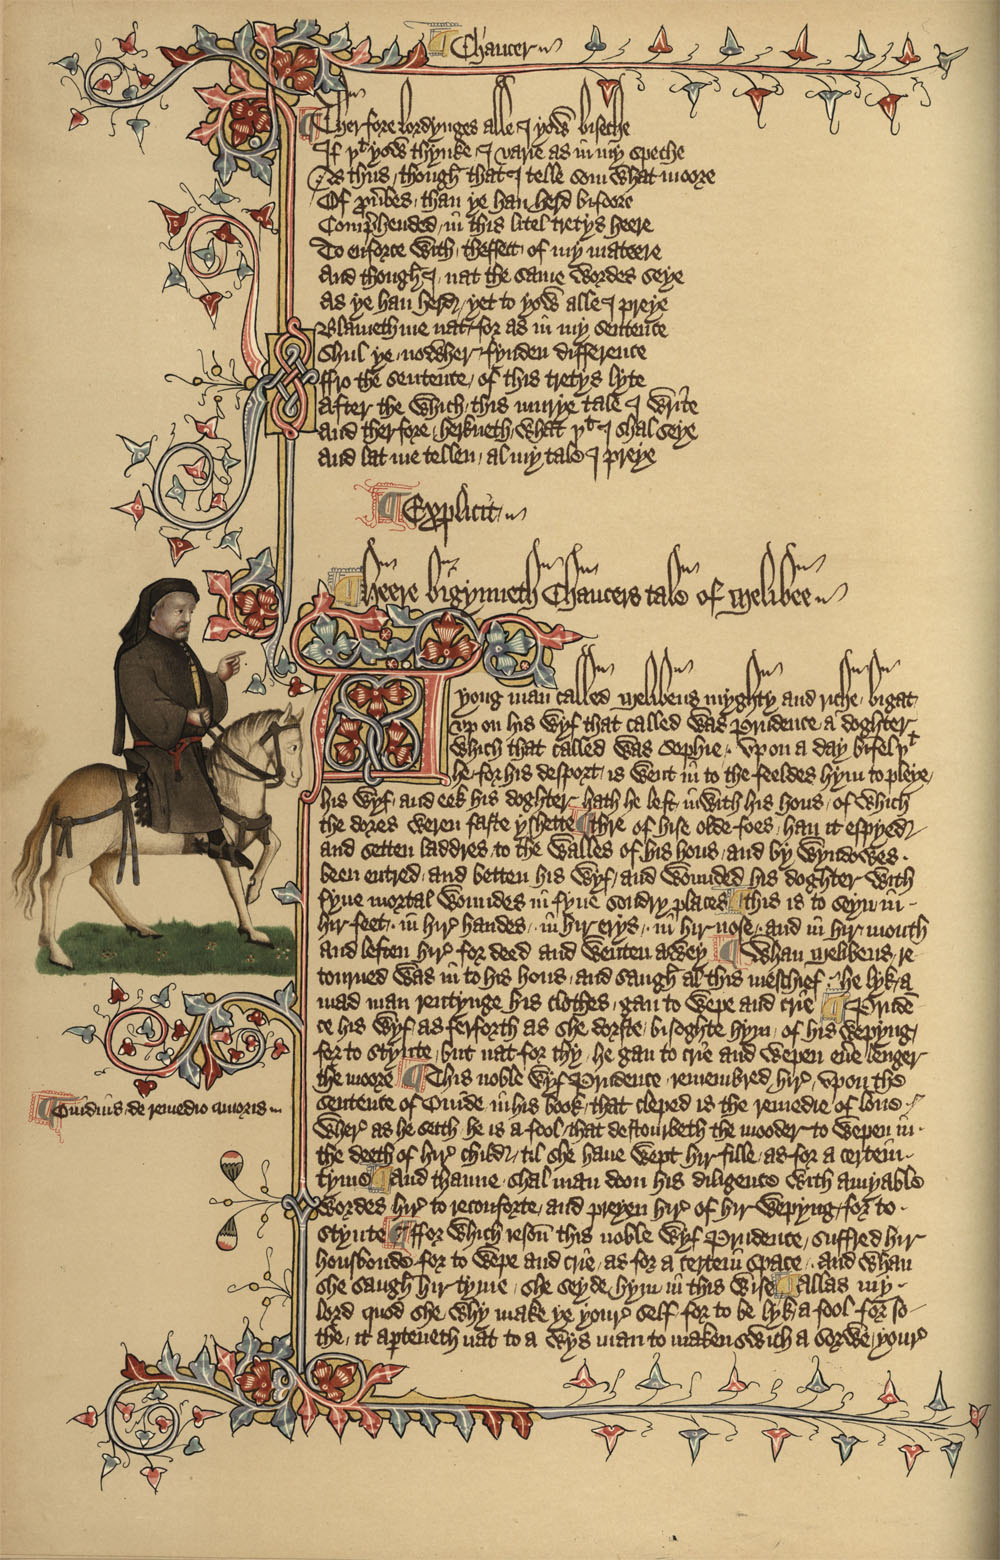 Chaucer
Therfore lordynges alle I yow biseche
If þt yow thynke I varie as in my speche
As thus though that I telle som what moore
Of prouerbes than ye han herd bifoore
Comprehended in this litel tretys heere
To enforce with theffect of my mateere
And though I nat the same wordes seye
As ye han herd yet to yow alle I preye
Blameth me nat for as in my sentence
Shul ye nowher fynden difference
ffro the sentence of this tretys lyte
After the which this murye tale I write
And therfore herkneth what þt I shal seye
And lat me tellen al my tale I preye
Explicit
Heere bigynneth Chaucers tale of Melibee
A yong man called Melibeus myghty and riche bigat
vp on his wyf that called was Prudence a doghter
which that called was Sophie vpon a day bifel þt
he for his desport is went in to the feeldes hym to pleye
his wyf and eek his doghter hath he left inwith his hous of which
the dores weren faste yshette thre of hise olde foes han it espyed
and setten laddres to the walles of his hous and by wyndowes
been entred and betten his wyf and wounded his doghter with
fyue mortal woundes in fyue sondry places this is to seyn in
hir feet in hir handes in hir erys in hir nose and in hir mouth
and leften hir for deed and wenten awey Whan Melibeus re
tourned was in to his hous and saugh al this meschief he lyk a
mad man rentynge his clothes gan to wepe and crie Pruden
ce his wyf as ferforth as she dorste bisoghte hym of his wepyng
for to stynte but nat for thy he gan to crie and wepen euere lenger
the moore This noble wyf Prudence remembred hir vpon the
sentence of Ouide in his book that cleped is the remedie of loue
Ouidius de remedio amoris
wher as he seith he is a fool that destourbeth the mooder to wepen in
the deeth of hir child til she haue wept hir fille as for a certein
tyme and thanne shal man doon his diligence with amyable
wordes hir to reconforte and preyen hir of hir wepyng for to
stynte ffor which reson this noble wyf Prudence suffred hir
housbonde for to wepe and crie as for a certein space and whan
she saugh hir tyme she seyde hym in this wise Allas my
lord quod she why make ye youre self for to be lyk a fool for so
the it aperteneth nat to a wys man to maken swich a sorwe youre